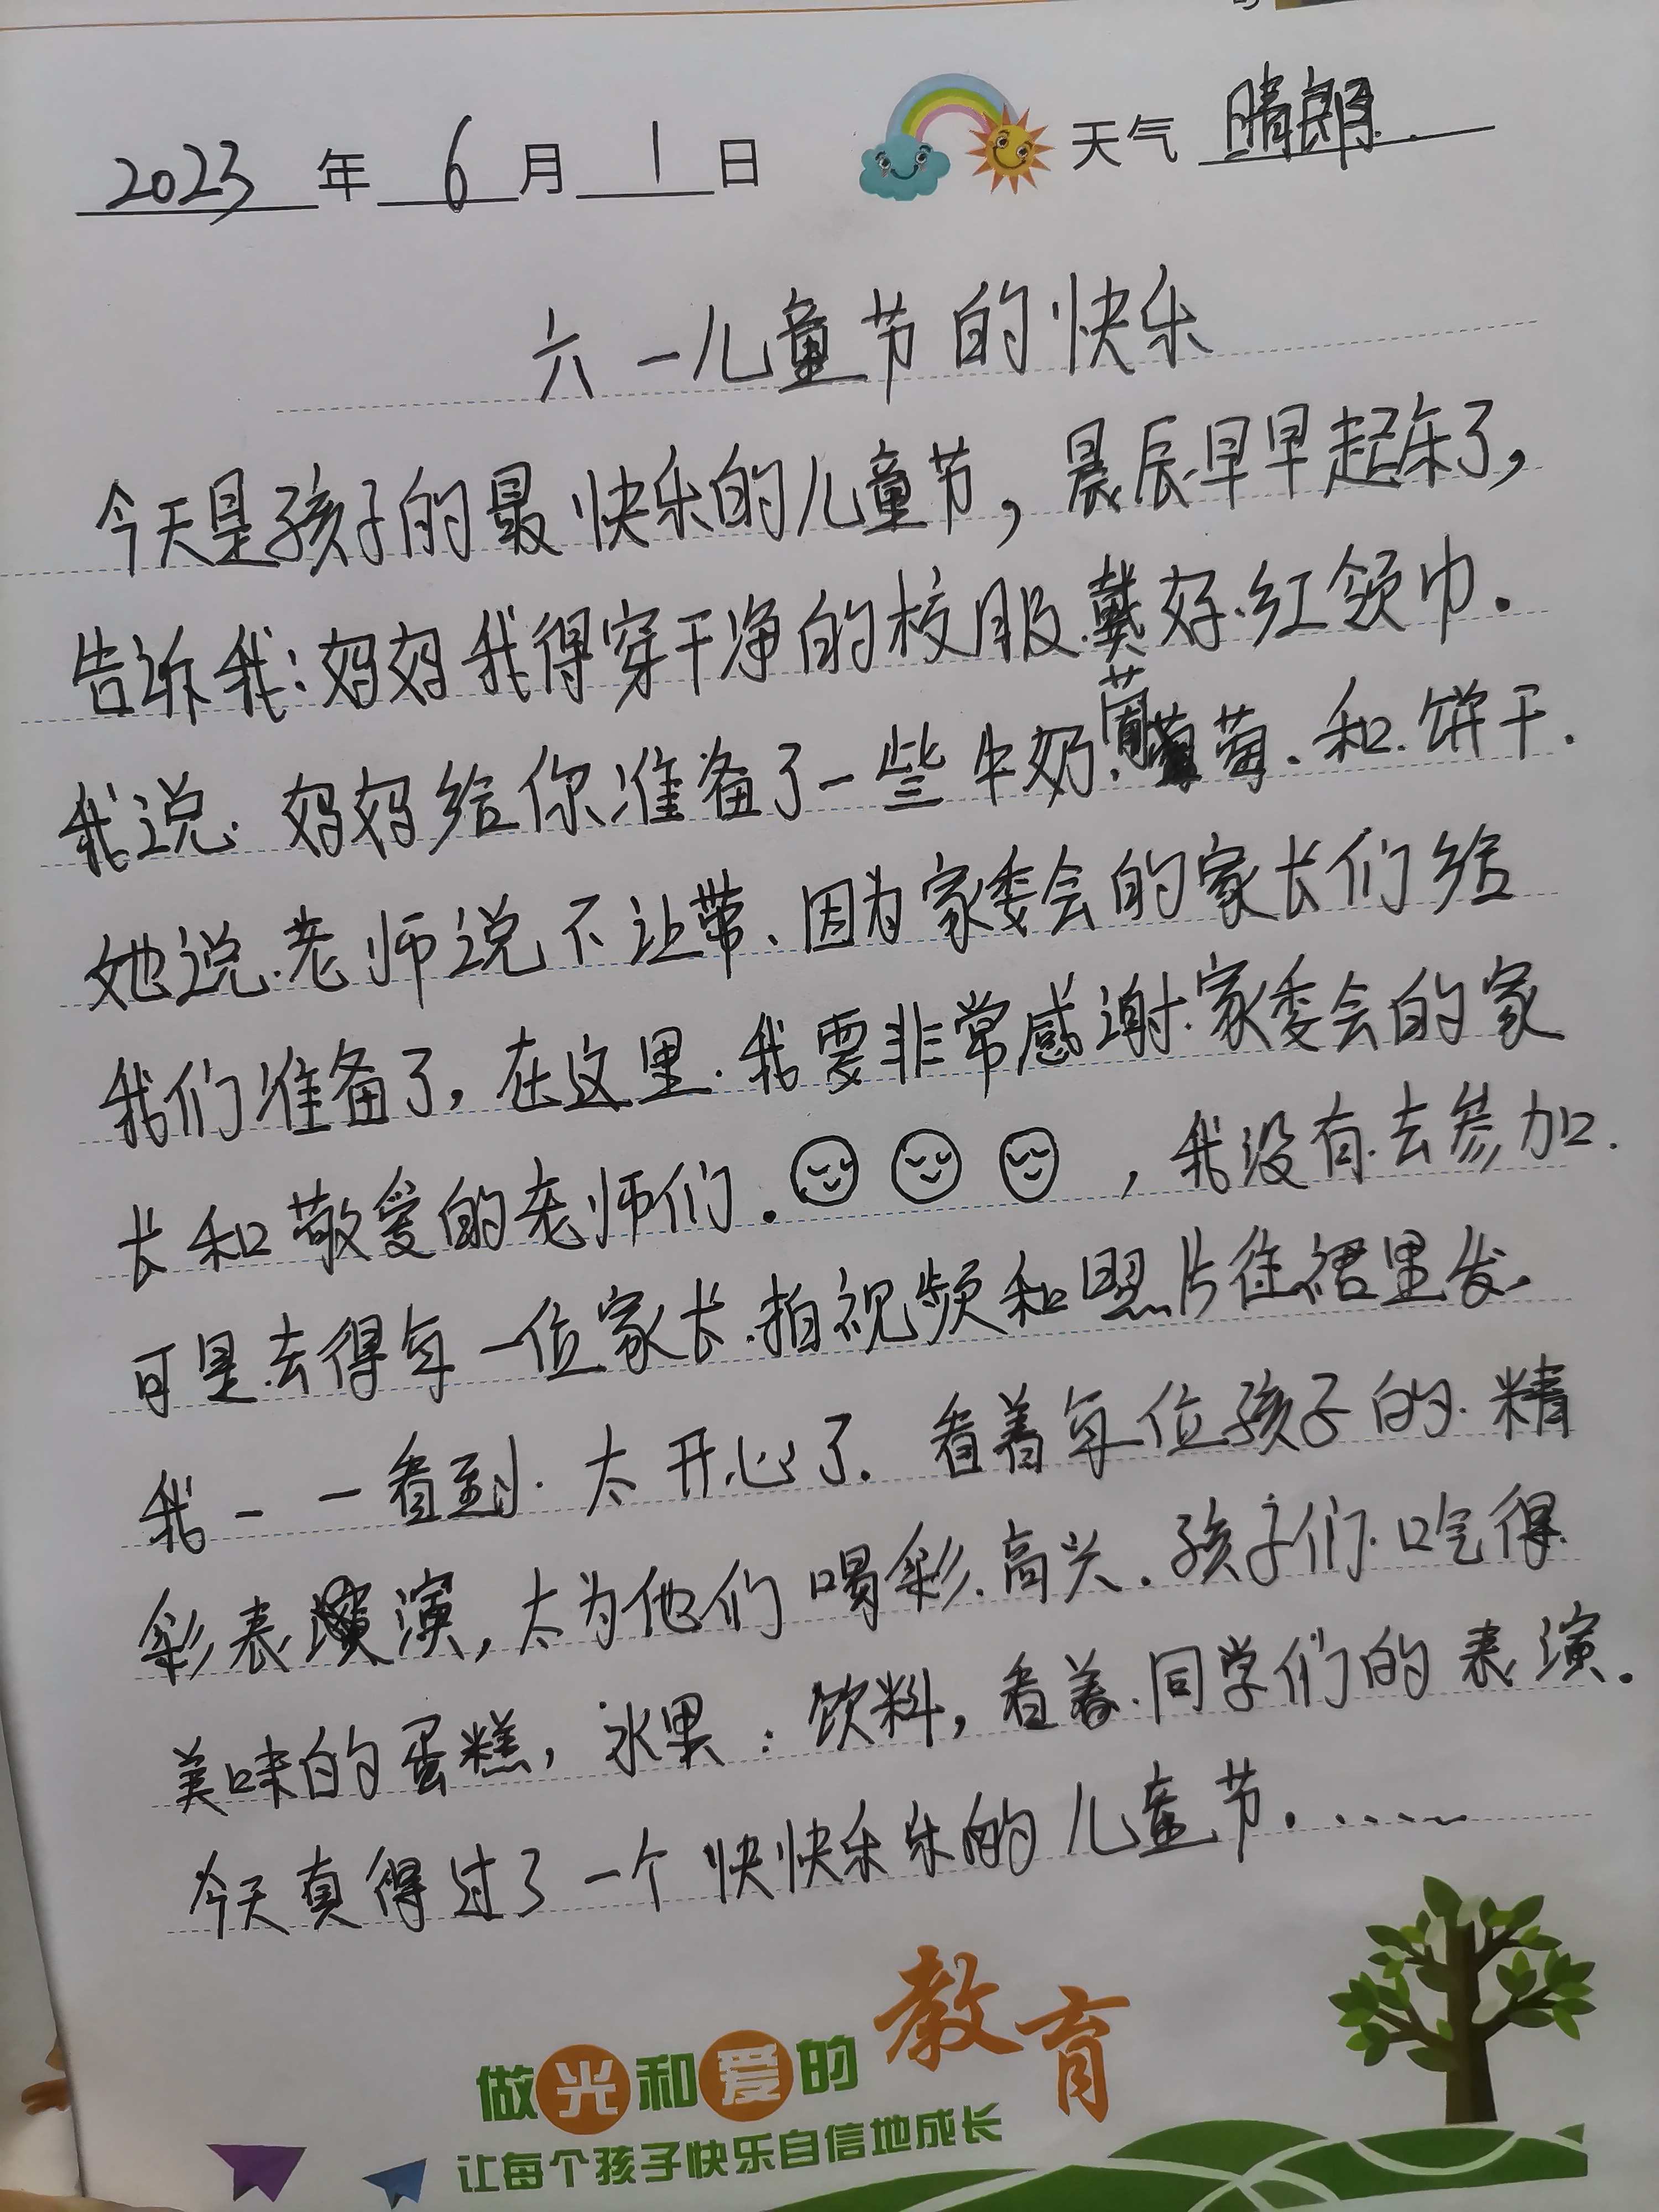 2023年6月1日 天气 晴朗
六一儿童节的快乐
今天是孩子的最快乐的儿童节，晨辰早早起床了，
告诉我：妈妈我得穿干净的校服.戴好.红领巾.
我说.妈妈给你准备了一些牛奶.葡萄.和.饼干.
她说.老师说不让带、因为家委会的家长们给
我们准备了，在这里.我要非常感谢.家委会的家
长和敬爱的老师们. ，我没有.去参加.
可是.去得每一位家长.拍视频和照片往裙里发.
我一一看到.太开心了.看着每位孩子的.精
彩表演，太为他们喝彩.高兴.孩子们.吃得
美味的蛋糕，水果：饮料，看着.同学们的表演.
今天真得过了一个快快乐乐的儿童节.......
做光和爱的教育
让每个孩子快乐自信地成长